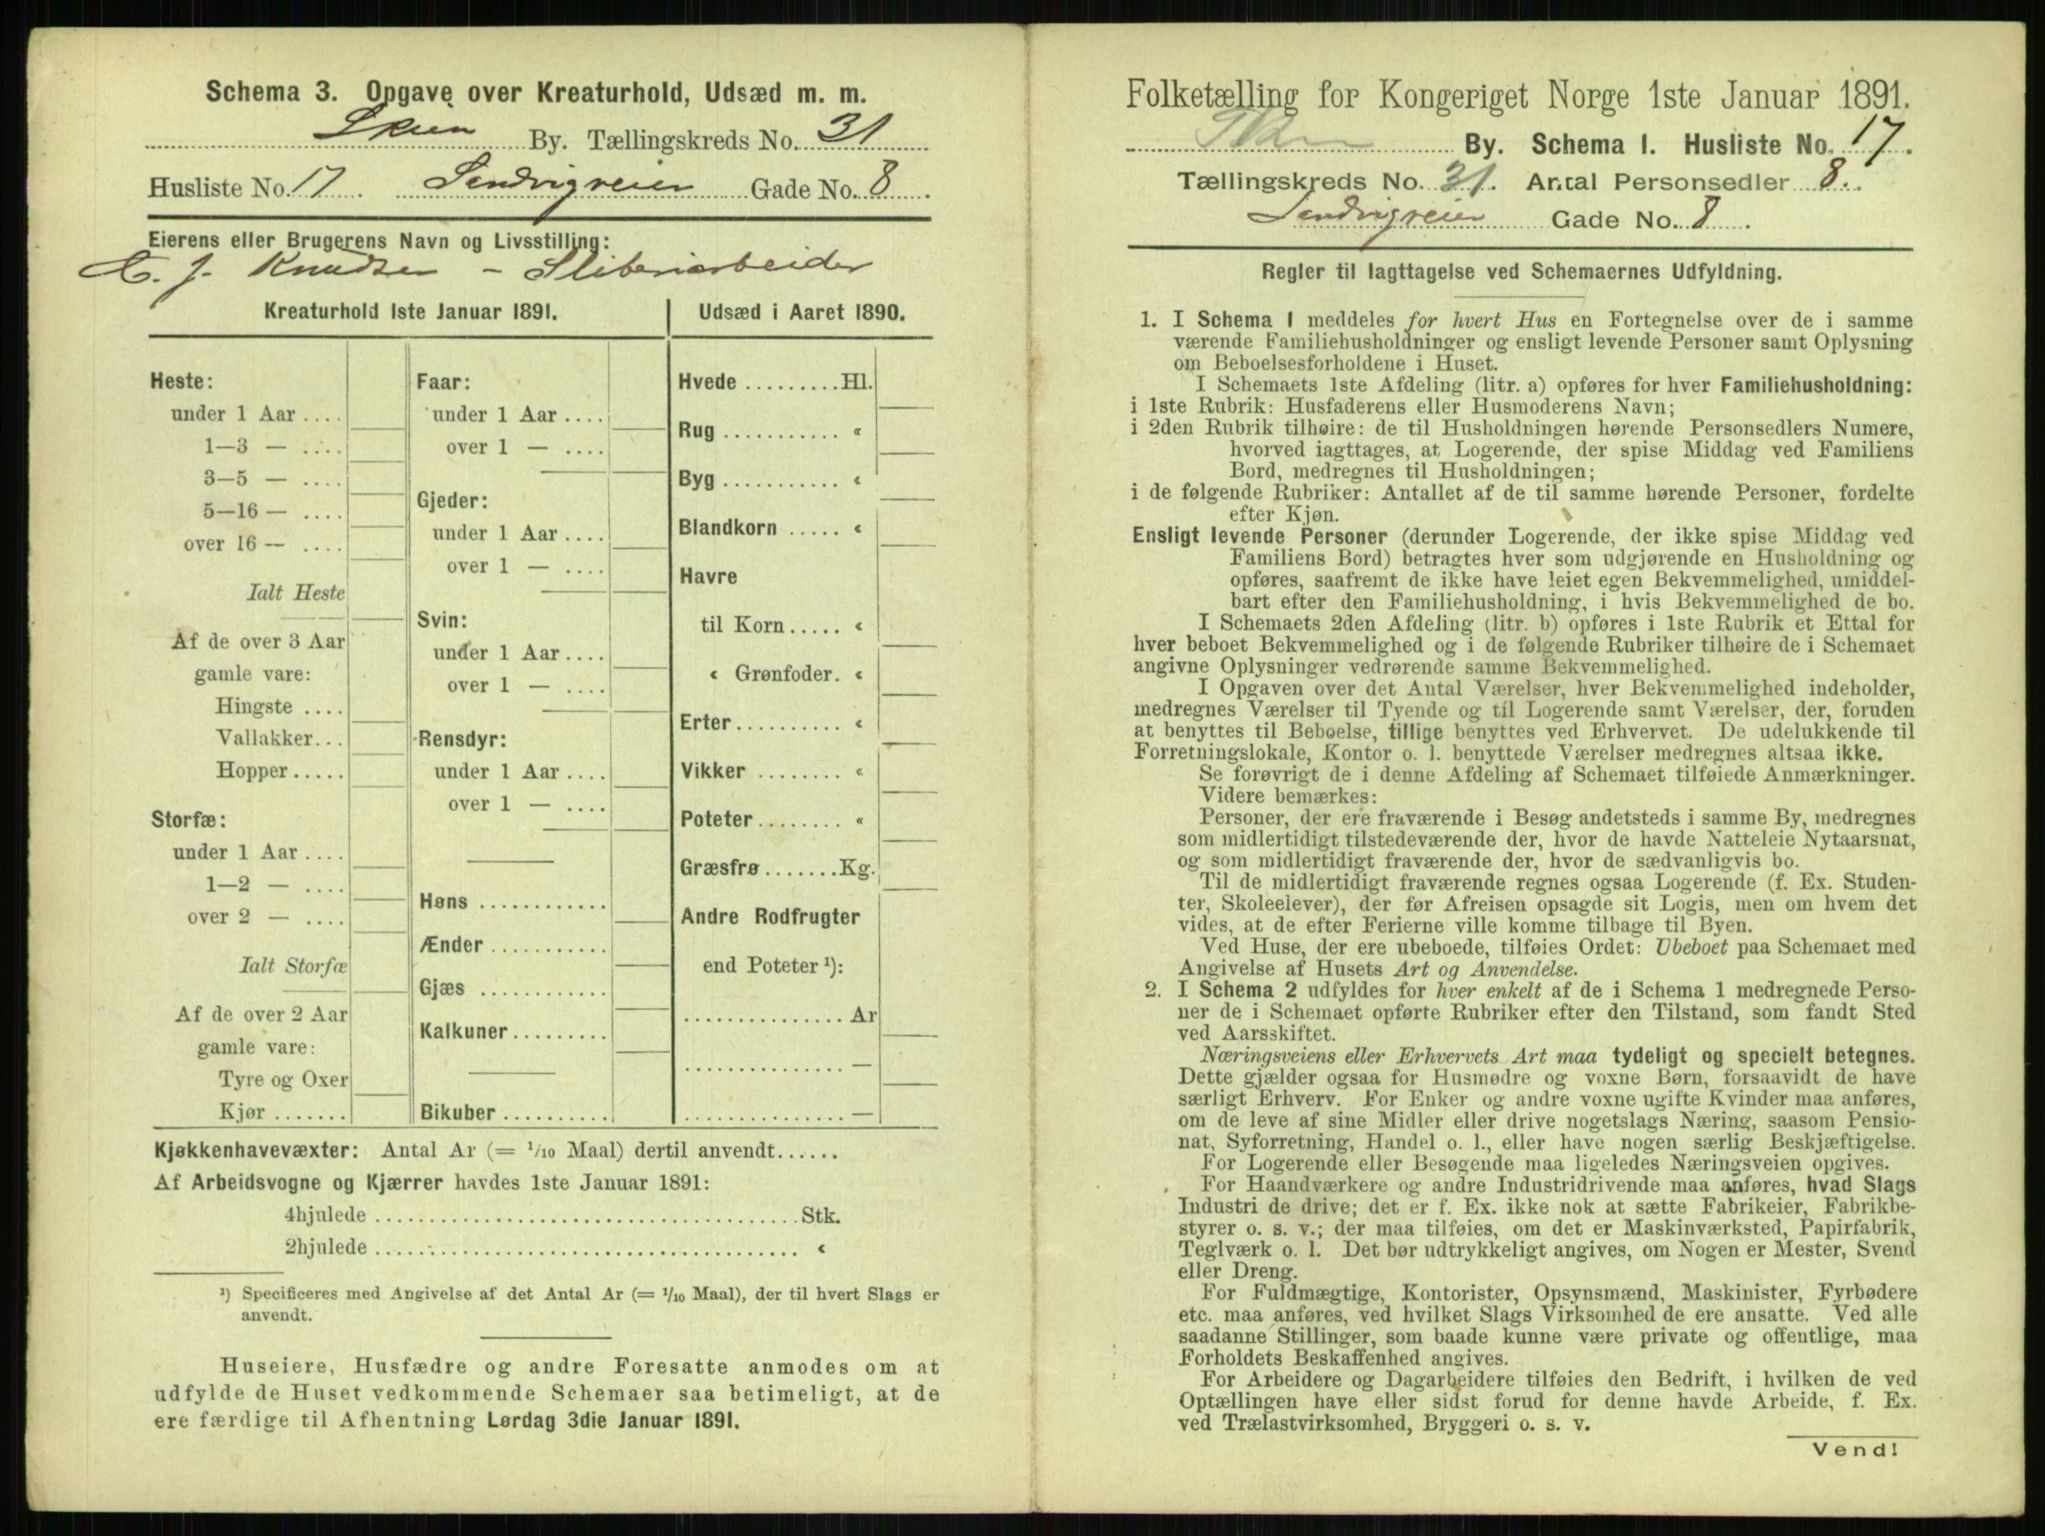 Schema 3. Opgave over Kreaturhold, Udsæd m. m.
Skien By. Tællingskreds No. 31
Husliste No. 17 Sandvigveien Gade No. 8
Eierens eller Brugerens Navn og Livsstilling:
C. J. Knudsen – Sliberiarbeider
Kreaturhold 1ste Januar 1891.
Heste:
under 1 Aar ....
1—3 — ....
3—5 — ....
5—16 — ....
over 16 — ....
Ialt Heste
Af de over 3 Aar
gamle vare:
Hingste ....
Vallakker...
Hopper.....
Storfæ:
under 1 Aar ....
1—2 — ....
over 2 — ....
Ialt Storfæ
Af de over 2 Aar
gamle vare:
Tyre og Oxer
Kjør .......
Faar:
under 1 Aar ....
over 1 — ....
Gjeder:
under 1 Aar ....
over 1 — ....
Svin:
under 1 Aar ....
over 1 — ....
Rensdyr:
under 1 Aar ....
over 1 — ....
Høns ............
Ænder ...........
Gjæs ............
Kalkuner.........
Bikuber ..........
Udsæd i Aaret 1890.
Hvede .........Hl.
Rug ........... «
Byg ........... «
Blandkorn ..... «
Havre
til Korn..... «
« Grønfoder. «
Erter.......... «
Vikker ........ «
Poteter........ «
Græsfrø.......Kg.
Andre Rodfrugter
end Poteter ¹):
............... Ar
............... —
............... —
Kjøkkenhavevæxter: Antal Ar (= 1/10 Maal) dertil anvendt......
Af Arbeidsvogne og Kjærrer havdes 1ste Januar 1891:
4hjulede ....................................... Stk.
2hjulede ....................................... «
¹) Specificeres med Angivelse af det Antal Ar (= 1/10 Maal), der til hvert Slags er
anvendt.
Huseiere, Husfædre og andre Foresatte anmodes om at
udfylde de Huset vedkommende Schemaer saa betimeligt, at de
ere færdige til Afhentning Lørdag 3die Januar 1891.
Folketælling for Kongeriget Norge 1ste Januar 1891.
Skien By. Schema 1. Husliste No. 17.
Tællingskreds No. 31. Antal Personsedler 8.
Sandvigveien Gade No. 8.
Regler til Iagttagelse ved Schemaernes Udfyldning.
1. I Schema 1 meddeles for hvert Hus en Fortegnelse over de i samme
værende Familiehusholdninger og ensligt levende Personer samt Oplysning
om Beboelsesforholdene i Huset.
I Schemaets 1ste Afdeling (litr. a) opføres for hver Familiehusholdning:
i 1ste Rubrik: Husfaderens eller Husmoderens Navn;
i 2den Rubrik tilhøire: de til Husholdningen hørende Personsedlers Numere,
hvorved iagttages, at Logerende, der spise Middag ved Familiens
Bord, medregnes til Husholdningen;
i de følgende Rubriker: Antallet af de til samme hørende Personer, fordelte
efter Kjøn.
Ensligt levende Personer (derunder Logerende, der ikke spise Middag ved
Familiens Bord) betragtes hver som udgjørende en Husholdning og
opføres, saafremt de ikke have leiet egen Bekvemmelighed, umiddel-
bart efter den Familiehusholdning, i hvis Bekvemmelighed de bo.
I Schemaets 2den Afdeling (litr. b) opføres i 1ste Rubrik et Ettal for
hver beboet Bekvemmelighed og i de følgende Rubriker tilhøire de i Schemaet
angivne Oplysninger vedrørende samme Bekvemmelighed.
I Opgaven over det Antal Værelser, hver Bekvemmelighed indeholder,
medregnes Værelser til Tyende og til Logerende samt Værelser, der, foruden
at benyttes til Beboelse, tillige benyttes ved Erhvervet. De udelukkende til
Forretningslokale, Kontor o. l. benyttede Værelser medregnes altsaa ikke.
Se forøvrigt de i denne Afdeling af Schemaet tilføiede Anmærkninger.
Videre bemærkes:
Personer, der ere fraværende i Besøg andetsteds i samme By, medregnes
som midlertidigt tilstedeværende der, hvor de havde Natteleie Nytaarsnat,
og som midlertidigt fraværende der, hvor de sædvanligvis bo.
Til de midlertidigt fraværende regnes ogsaa Logerende (f. Ex. Studen-
ter, Skoleelever), der før Afreisen opsagde sit Logis, men om hvem det
vides, at de efter Ferierne ville komme tilbage til Byen.
Ved Huse, der ere ubeboede, tilføies Ordet: Ubeboet paa Schemaet med
Angivelse af Husets Art og Anvendelse.
2. I Schema 2 udfyldes for hver enkelt af de i Schema 1 medregnede Perso-
ner de i Schemaet opførte Rubriker efter den Tilstand, som fandt Sted
ved Aarsskiftet.
Næringsveiens eller Erhvervets Art maa tydeligt og specielt betegnes.
Dette gjælder ogsaa for Husmødre og voxne Børn, forsaavidt de have
særligt Erhverv. For Enker og andre voxne ugifte Kvinder maa anføres,
om de leve af sine Midler eller drive nogetslags Næring, saasom Pensio-
nat, Syforretning, Handel o. l., eller have nogen særlig Beskjæftigelse.
For Logerende eller Besøgende maa ligeledes Næringsveien opgives.
For Haandværkere og andre Industridrivende maa anføres, hvad Slags
Industri de drive; det er f. Ex. ikke nok at sætte Fabrikeier, Fabrikbe-
styrer o. s. v.; der maa tilføies, om det er Maskinværksted, Papirfabrik,
Teglværk o. l. Det bør udtrykkeligt angives, om Nogen er Mester, Svend
eller Dreng.
For Fuldmægtige, Kontorister, Opsynsmænd, Maskinister, Fyrbødere
etc. maa anføres, ved hvilket Slags Virksomhed de ere ansatte. Ved alle
saadanne Stillinger, som baade kunne være private og offentlige, maa
Forholdets Beskaffenhed angives.
For Arbeidere og Dagarbeidere tilføies den Bedrift, i hvilken de ved
Optællingen have eller sidst forud for denne havde Arbeide, f. Ex.
ved Trælastvirksomhed, Bryggeri o. s. v.
Vend!